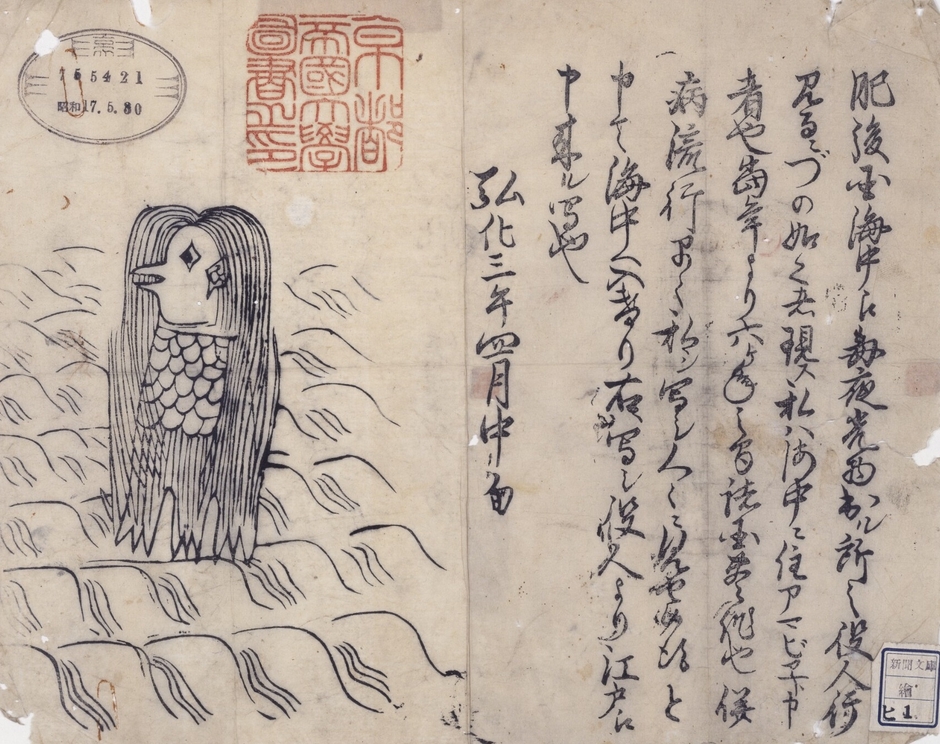 肥後国海中え毎夜光物出ル所之役人行
見るニづの如く者現ス私ハ海中ニ住アマビヱト申
者也當年より六ヶ年之間諸国豊作也併
病流行早々私シ写シ人々ニ見せ候得と
申て海中へ入けり右写シ役人より江戸え
申来ル写也
弘化三年四月中旬
京都
帝國大學
圖書之印
昭和17.5.30
新聞文庫
繪
ヒ 1